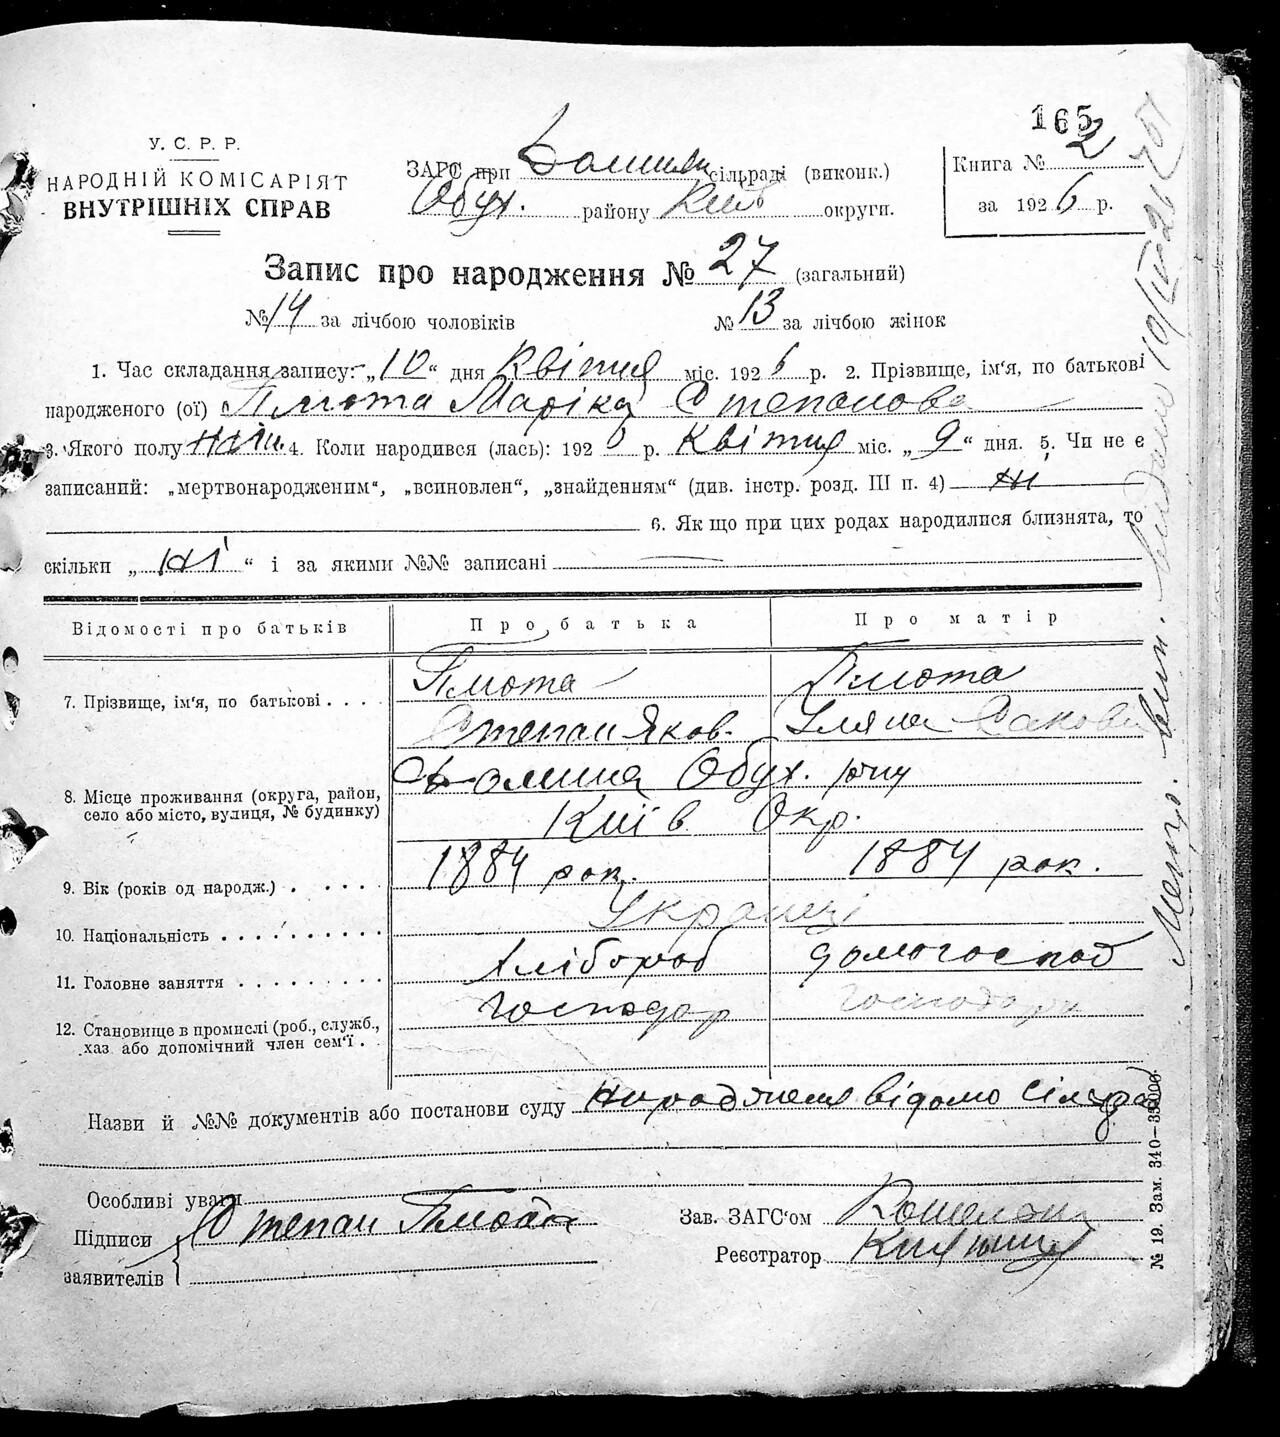 165
У. С. Р. Р.
НАРОДНІЙ КОМІСАРІЯТ
ВНУТРІШНІХ СПРАВ
ЗАГС при сільраді (виконк.)
Обух. району Київ округи.
Книга № 2
за 1926 р.
Запис про народження № 27 (загальний)
№ 14 за лічбою чоловіків № 13 за лічбою жінок
1. Час складання запису: „10“ дня Квітня міс. 1926 р. 2. Прізвище, ім'я, по батькові
народженого (ої) Плюта Степанова
3. Якого полу жін. 4. Коли народився (лась): 1926 р. Квітня міс. „9“ дня. 5. Чи не є
записаний: „мертвонародженим“, „всиновлен“, „знайденням“ (див. інстр. розд. III п. 4) ні
6. Як що при цих родах народилися близнята, то
скільки „ні“ і за якими №№ записані
Відомості про батьків Про батька Про матір
7. Прізвище, ім'я, по батькові . . . . Плюта Плюта
Степан Яков. Уляна
8. Місце проживання (округа, район,
село або місто, вулиця, № будинку)
Долина Обух. р-ну
Київ Окр.
9. Вік (років од народж.) . . . . . 1884 рок. 1884 рок.
10. Національність . . . . . . . . . . Українці
11. Головне заняття . . . . . . . . . Хлібороб домогоспод
12. Становище в промислі (роб., служб.,
хаз. або допомічний член сем'ї . .
господар
Назви й №№ документів або постанови суду Народження відомо Сільраді
Особливі уваги
Підписи
заявителів
Степан Плюта
Зав. ЗАГС'ом
Реєстратор
№ 19. Зам. 340—35000.